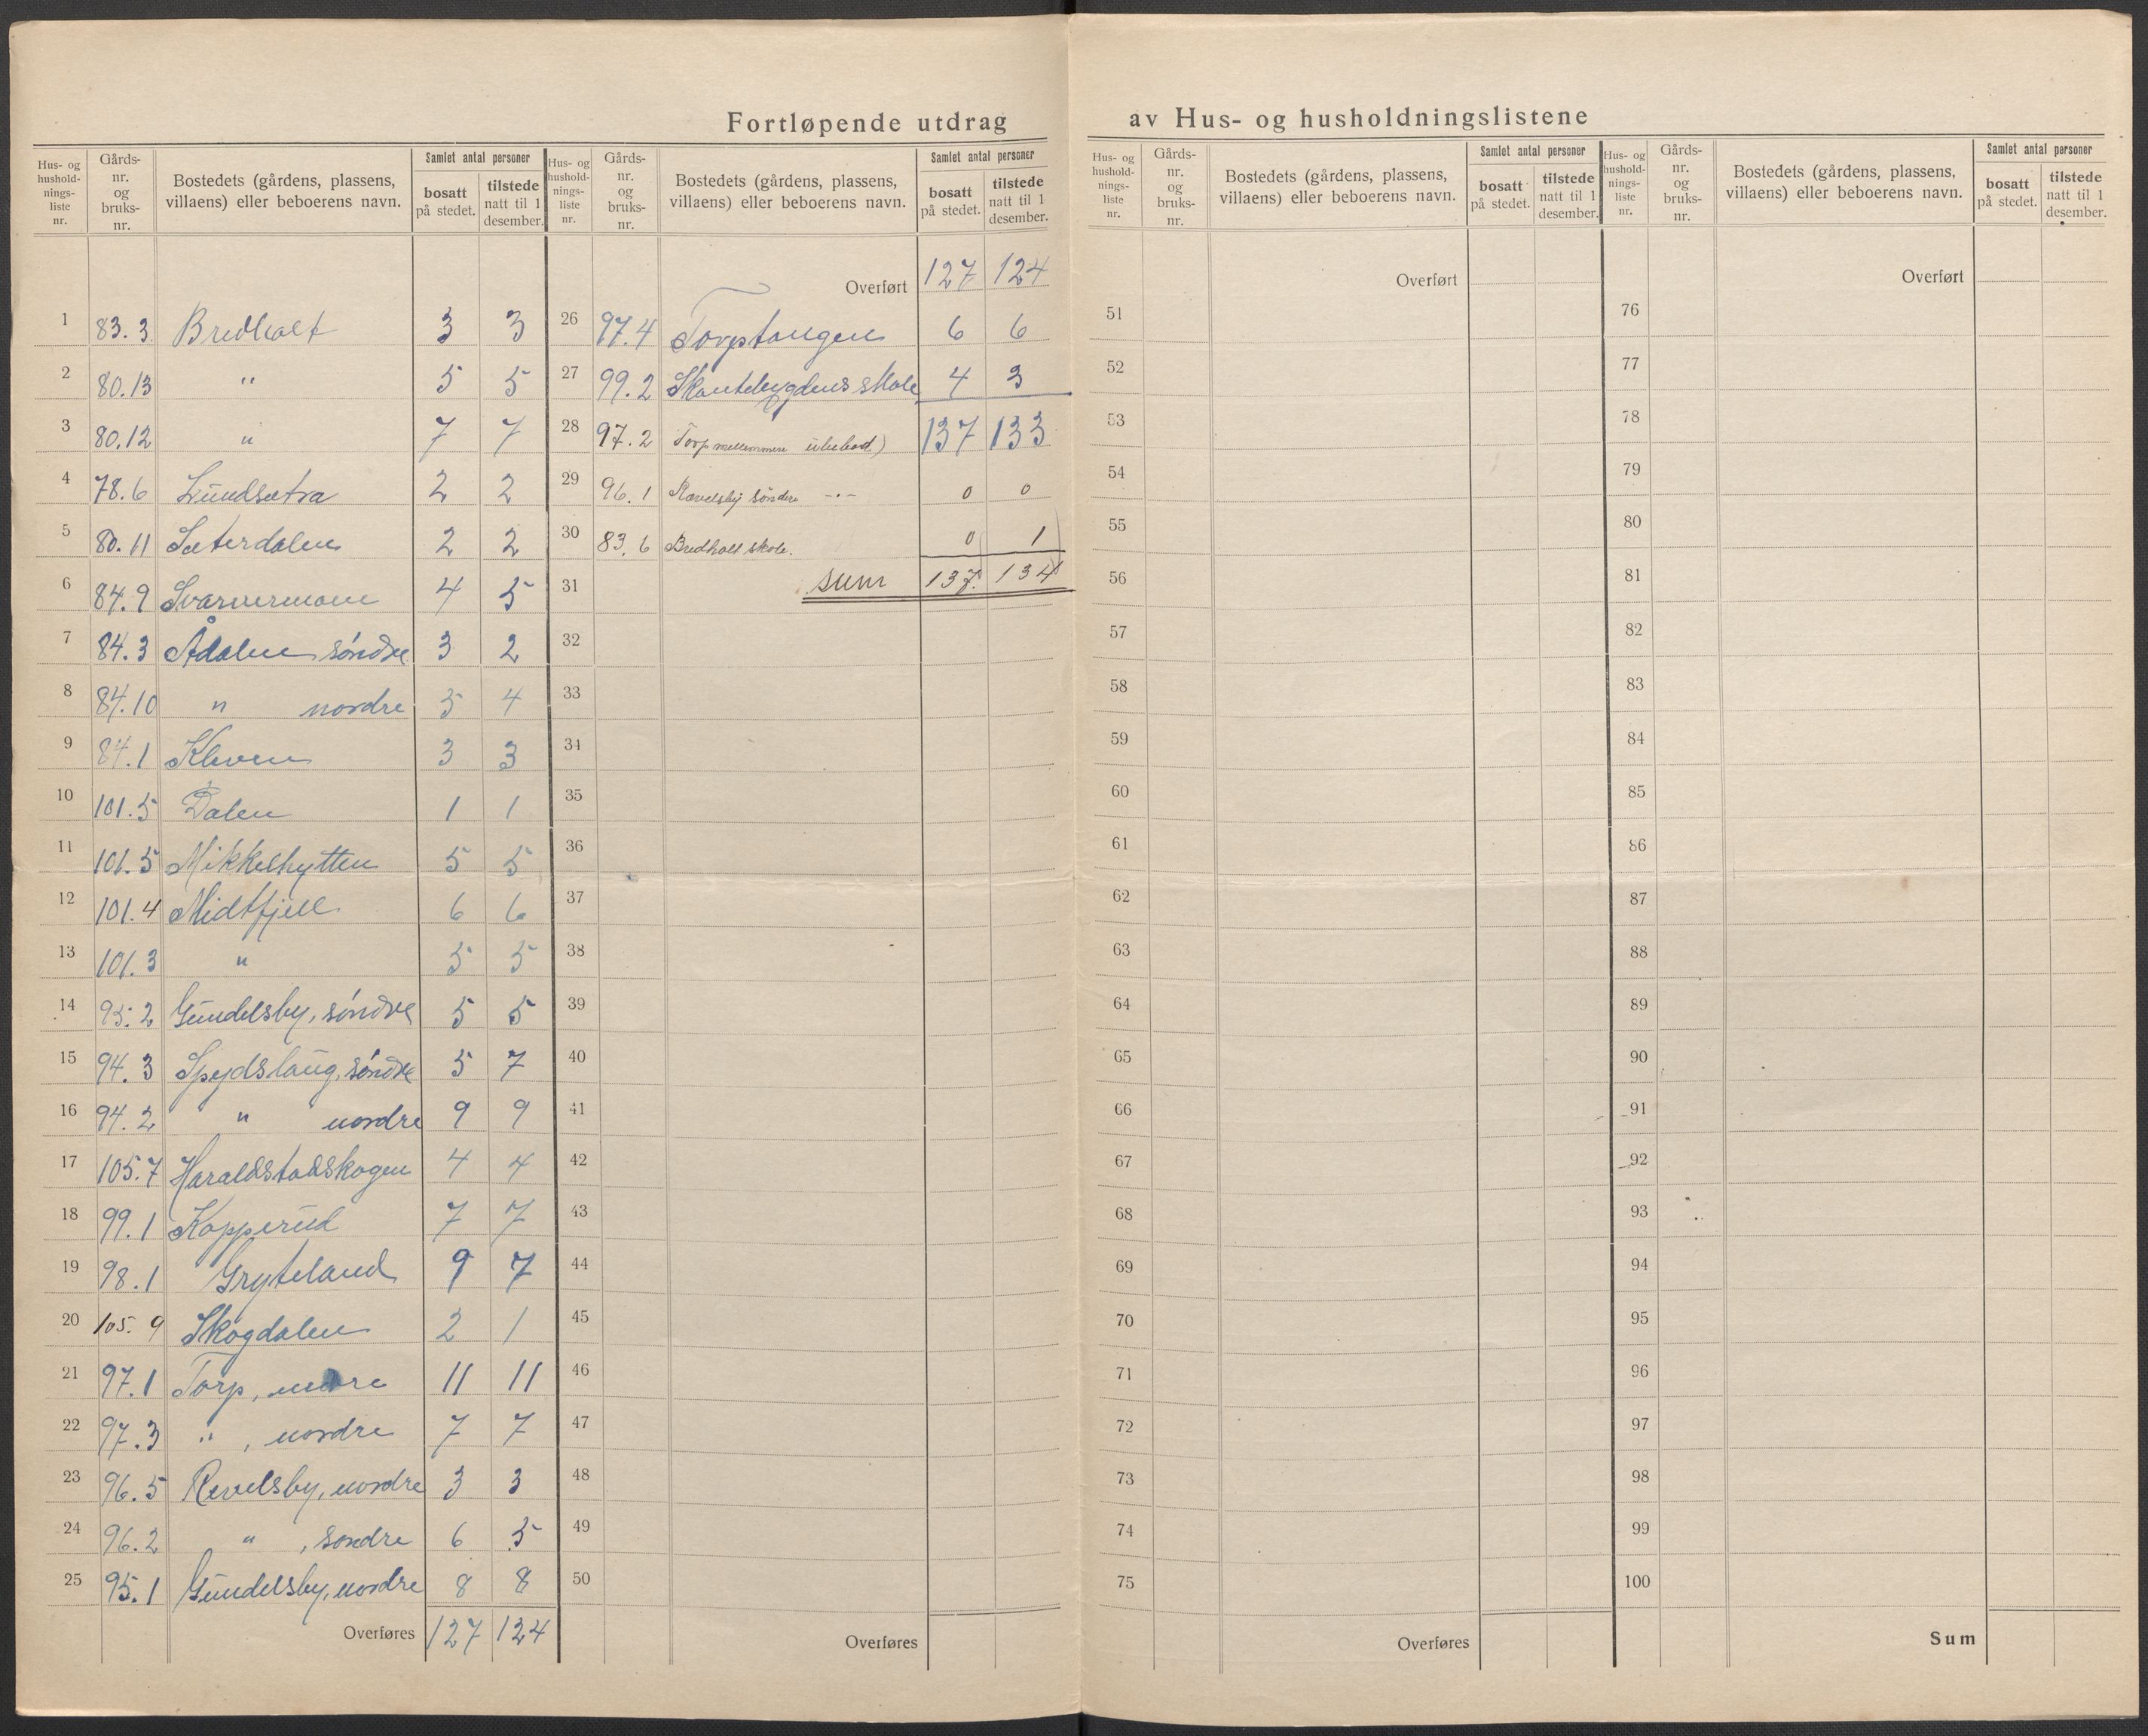 Fortløpende utdrag av Hus- og husholdningslistene
Hus- og hushold-nings-liste nr. | Gårds-nr. og bruks-nr. | Bostedets (gårdens, plassens, villaens) eller beboerens navn. | Samlet antal personer | bosatt på stedet. | tilstede natt til 1 desember.
1 83.3 Bredholt 3 3
2 80.13 " 5 5
3 80.12 " 7 7
4 78.6 Lundsætra 2 2
5 80.11 Sæterdalen 2 2
6 84.9 Svarvermoen 4 5
7 84.3 Ådalen søndre 3 2
8 84.10 " nordre 5 4
9 84.1 Kleven 3 3
10 101.5 Dalen 1 1
11 101.5 Mikkelhytten 5 5
12 101.4 Midtfjell 6 6
13 101.3 " 5 5
14 95.2 Gundelsby, søndre 5 5
15 94.3 Spydslaug, søndre 5 7
16 94.2 " nordre 9 9
17 105.7 Haraldstadskogen 4 4
18 99.1 Kopperud 7 7
19 98.1 Gryteland 9 7
20 105.9 Skogdalen 2 1
21 97.1 Torp, 11 11
22 97.3 " , nordre 7 7
23 96.5 Revelsby, nordre 3 3
24 96.2 " , søndre 6 5
25 95.1 Gundelsby, nordre 8 8
Overføres 127 124
Hus- og hushold-nings-liste nr. | Gårds-nr. og bruks-nr. | Bostedets (gårdens, plassens, villaens) eller beboerens navn. | Samlet antal personer | bosatt på stedet. | tilstede natt til 1 desember.
Overført 127 124
26 97.4 Torptangen 6 6
27 99.2 Skantebygdens skole 4 3
28 97.2 Torp mellemmere ubebod) 137 133
29 96.1 Rævelsby søndre -"- 0 0
30 83.6 Bredholt skole. 0 1
31 sum 137. 134
32
33
34
35
36
37
38
39
40
41
42
43
44
45
46
47
48
49
50
Overføres
Hus- og hushold-nings-liste nr. | Gårds-nr. og bruks-nr. | Bostedets (gårdens, plassens, villaens) eller beboerens navn. | Samlet antal personer | bosatt på stedet. | tilstede natt til 1 desember.
Overført
51
52
53
54
55
56
57
58
59
60
61
62
63
64
65
66
67
68
69
70
71
72
73
74
75
Overføres
Hus- og hushold-nings-liste nr. | Gårds-nr. og bruks-nr. | Bostedets (gårdens, plassens, villaens) eller beboerens navn. | Samlet antal personer | bosatt på stedet. | tilstede natt til 1 desember.
Overført
76
77
78
79
80
81
82
83
84
85
86
87
88
89
90
91
92
93
94
95
96
97
98
99
100
Sum